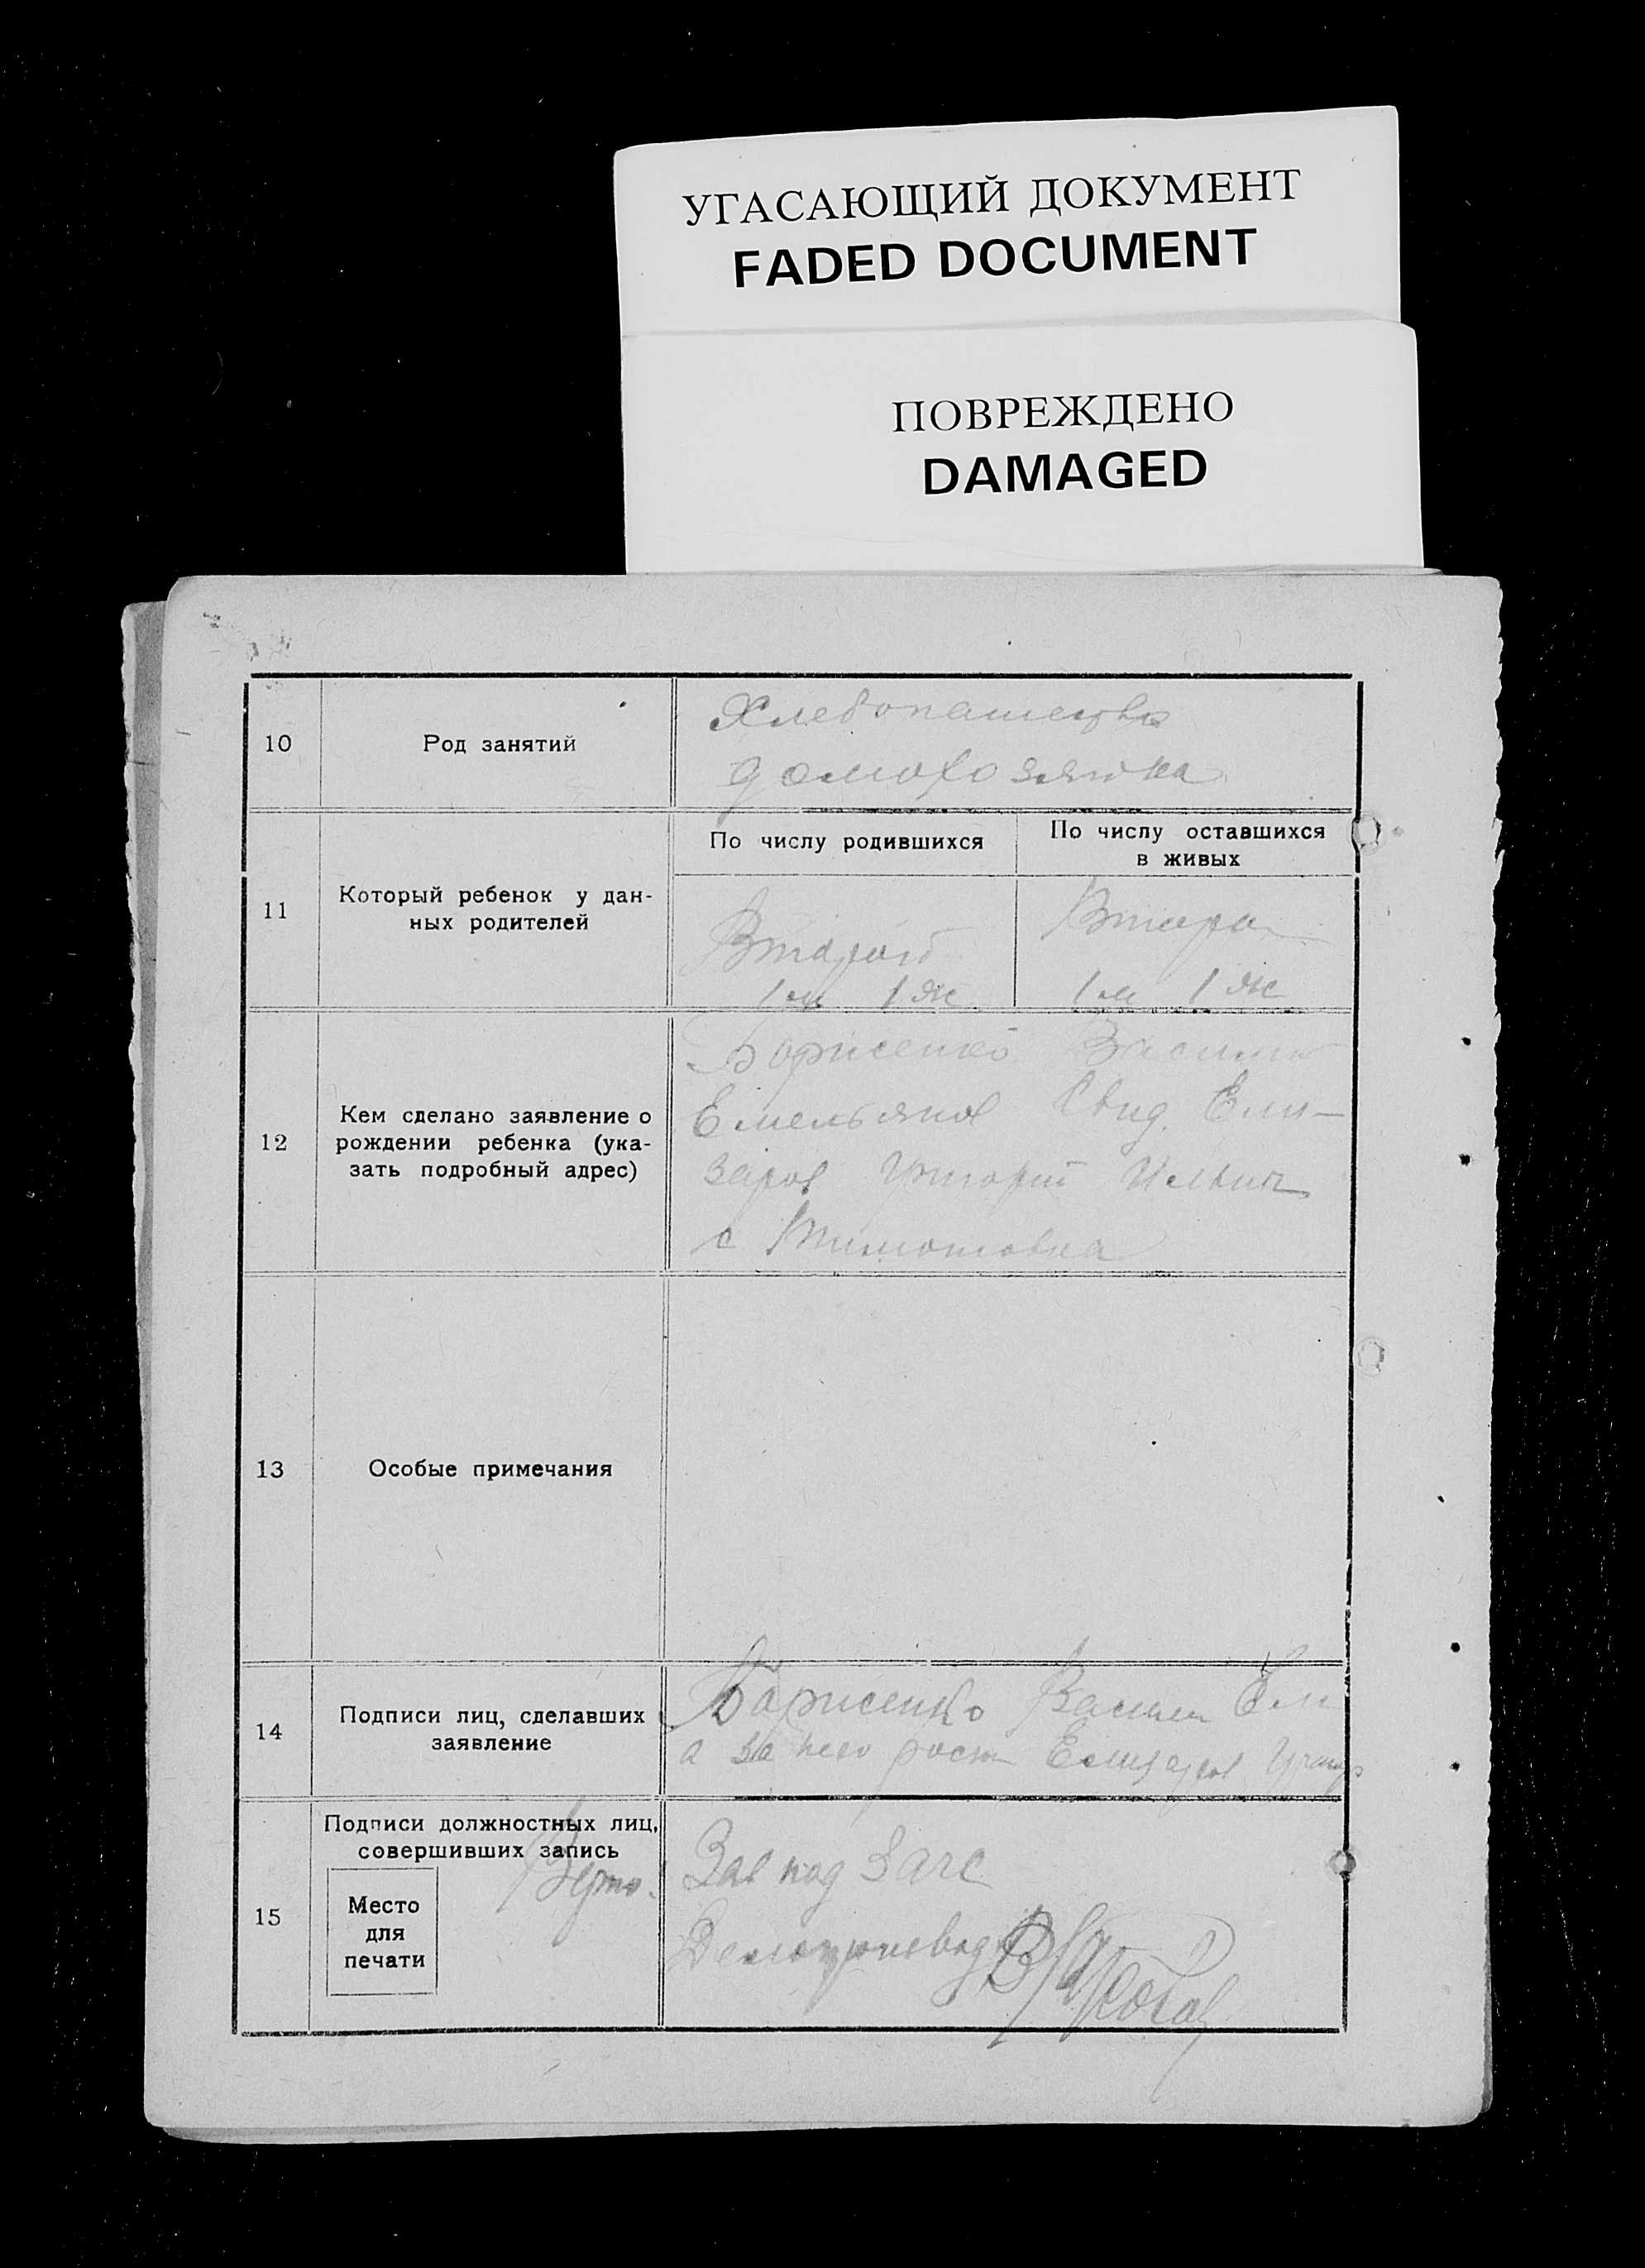 УГАСАЮЩИЙ ДОКУМЕНТ
FADED DOCUMENT
ПОВРЕЖДЕНО
DAMAGED
10
Род занятий
Хлебопашество
домохозяйка
11
Который ребенок у дан-
ных родителей
По числу родившихся
По числу оставшихся
в живых
Второй
1 м 1 ж
Второй
1 м 1 ж
12
Кем сделано заявление о
рождении ребенка (ука-
зать подробный адрес)
Борисенко Василий
Емельянов Свид. Ели-
заров Григорий Ильич
с
13
Особые примечания
14
Подписи лиц, сделавших
заявление
Борисенко Васили Ем
а за него росп Елизаров Григор
15
Подписи должностных лиц,
совершивших запись
Место
для
печати
Верно.
Зав под Загс
Делопроизвод